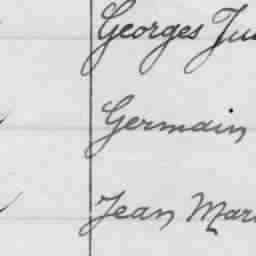 Georges Ju
Germain
Jean Mar